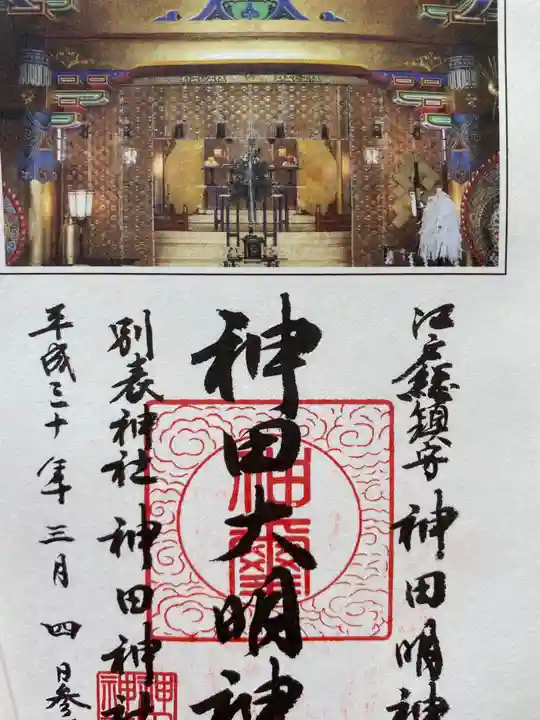 江戸総鎮守 神田明神
神田大明神
神璽
別表神社 神田神社
平成三十年三月四日参